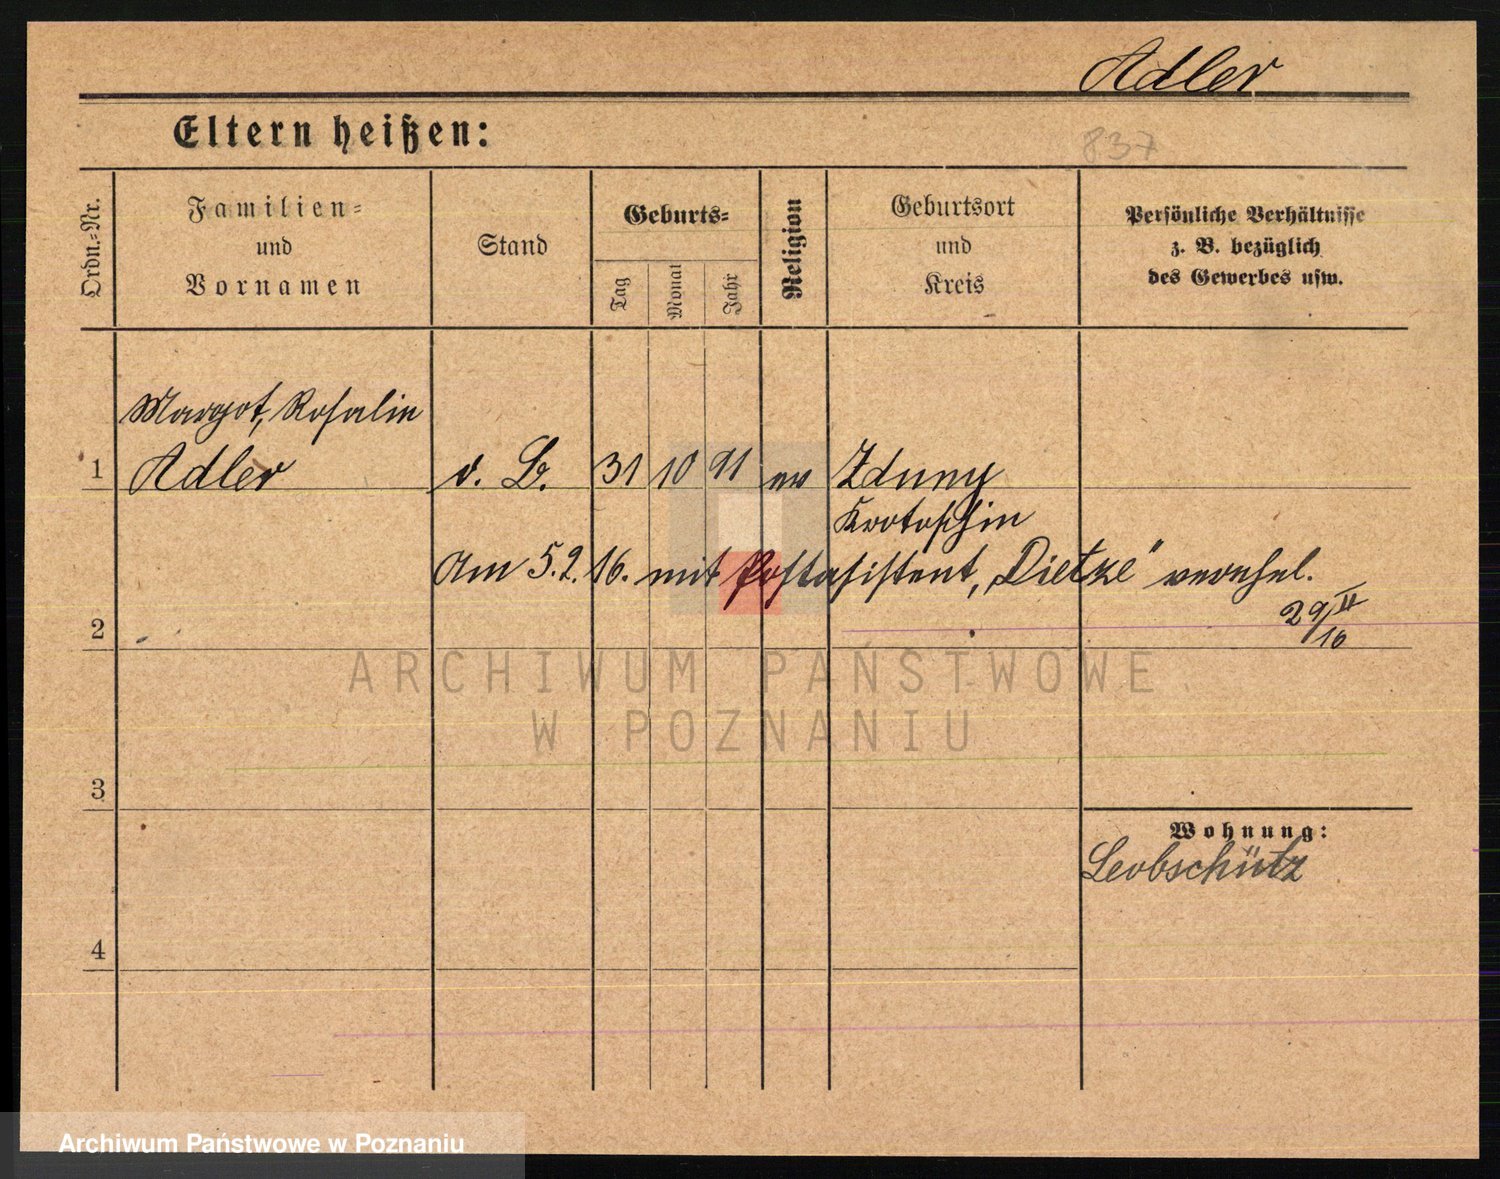 Adler
Eltern heißen:
837
Ordn.-Nr.
Familien-
und
Vornamen
Stand
Geburts-
Tag
Monat
Jahr
Religion
Geburtsort
und
Kreis
Persönliche Verhältnisse
z. B. bezüglich
des Gewerbes usw.
Margot, Rosalin
1 Adler o. B. 31 10 91 ev Zduny
Krotoschin
Am 5.2.16. mit Postasistent, „Dietze“ verehel.
29/II 16
2
ARCHIWUM PAŃSTWOWE
W POZNANIU
3
Wohnung:
Leobschütz
4
Archiwum Państwowe w Poznaniu